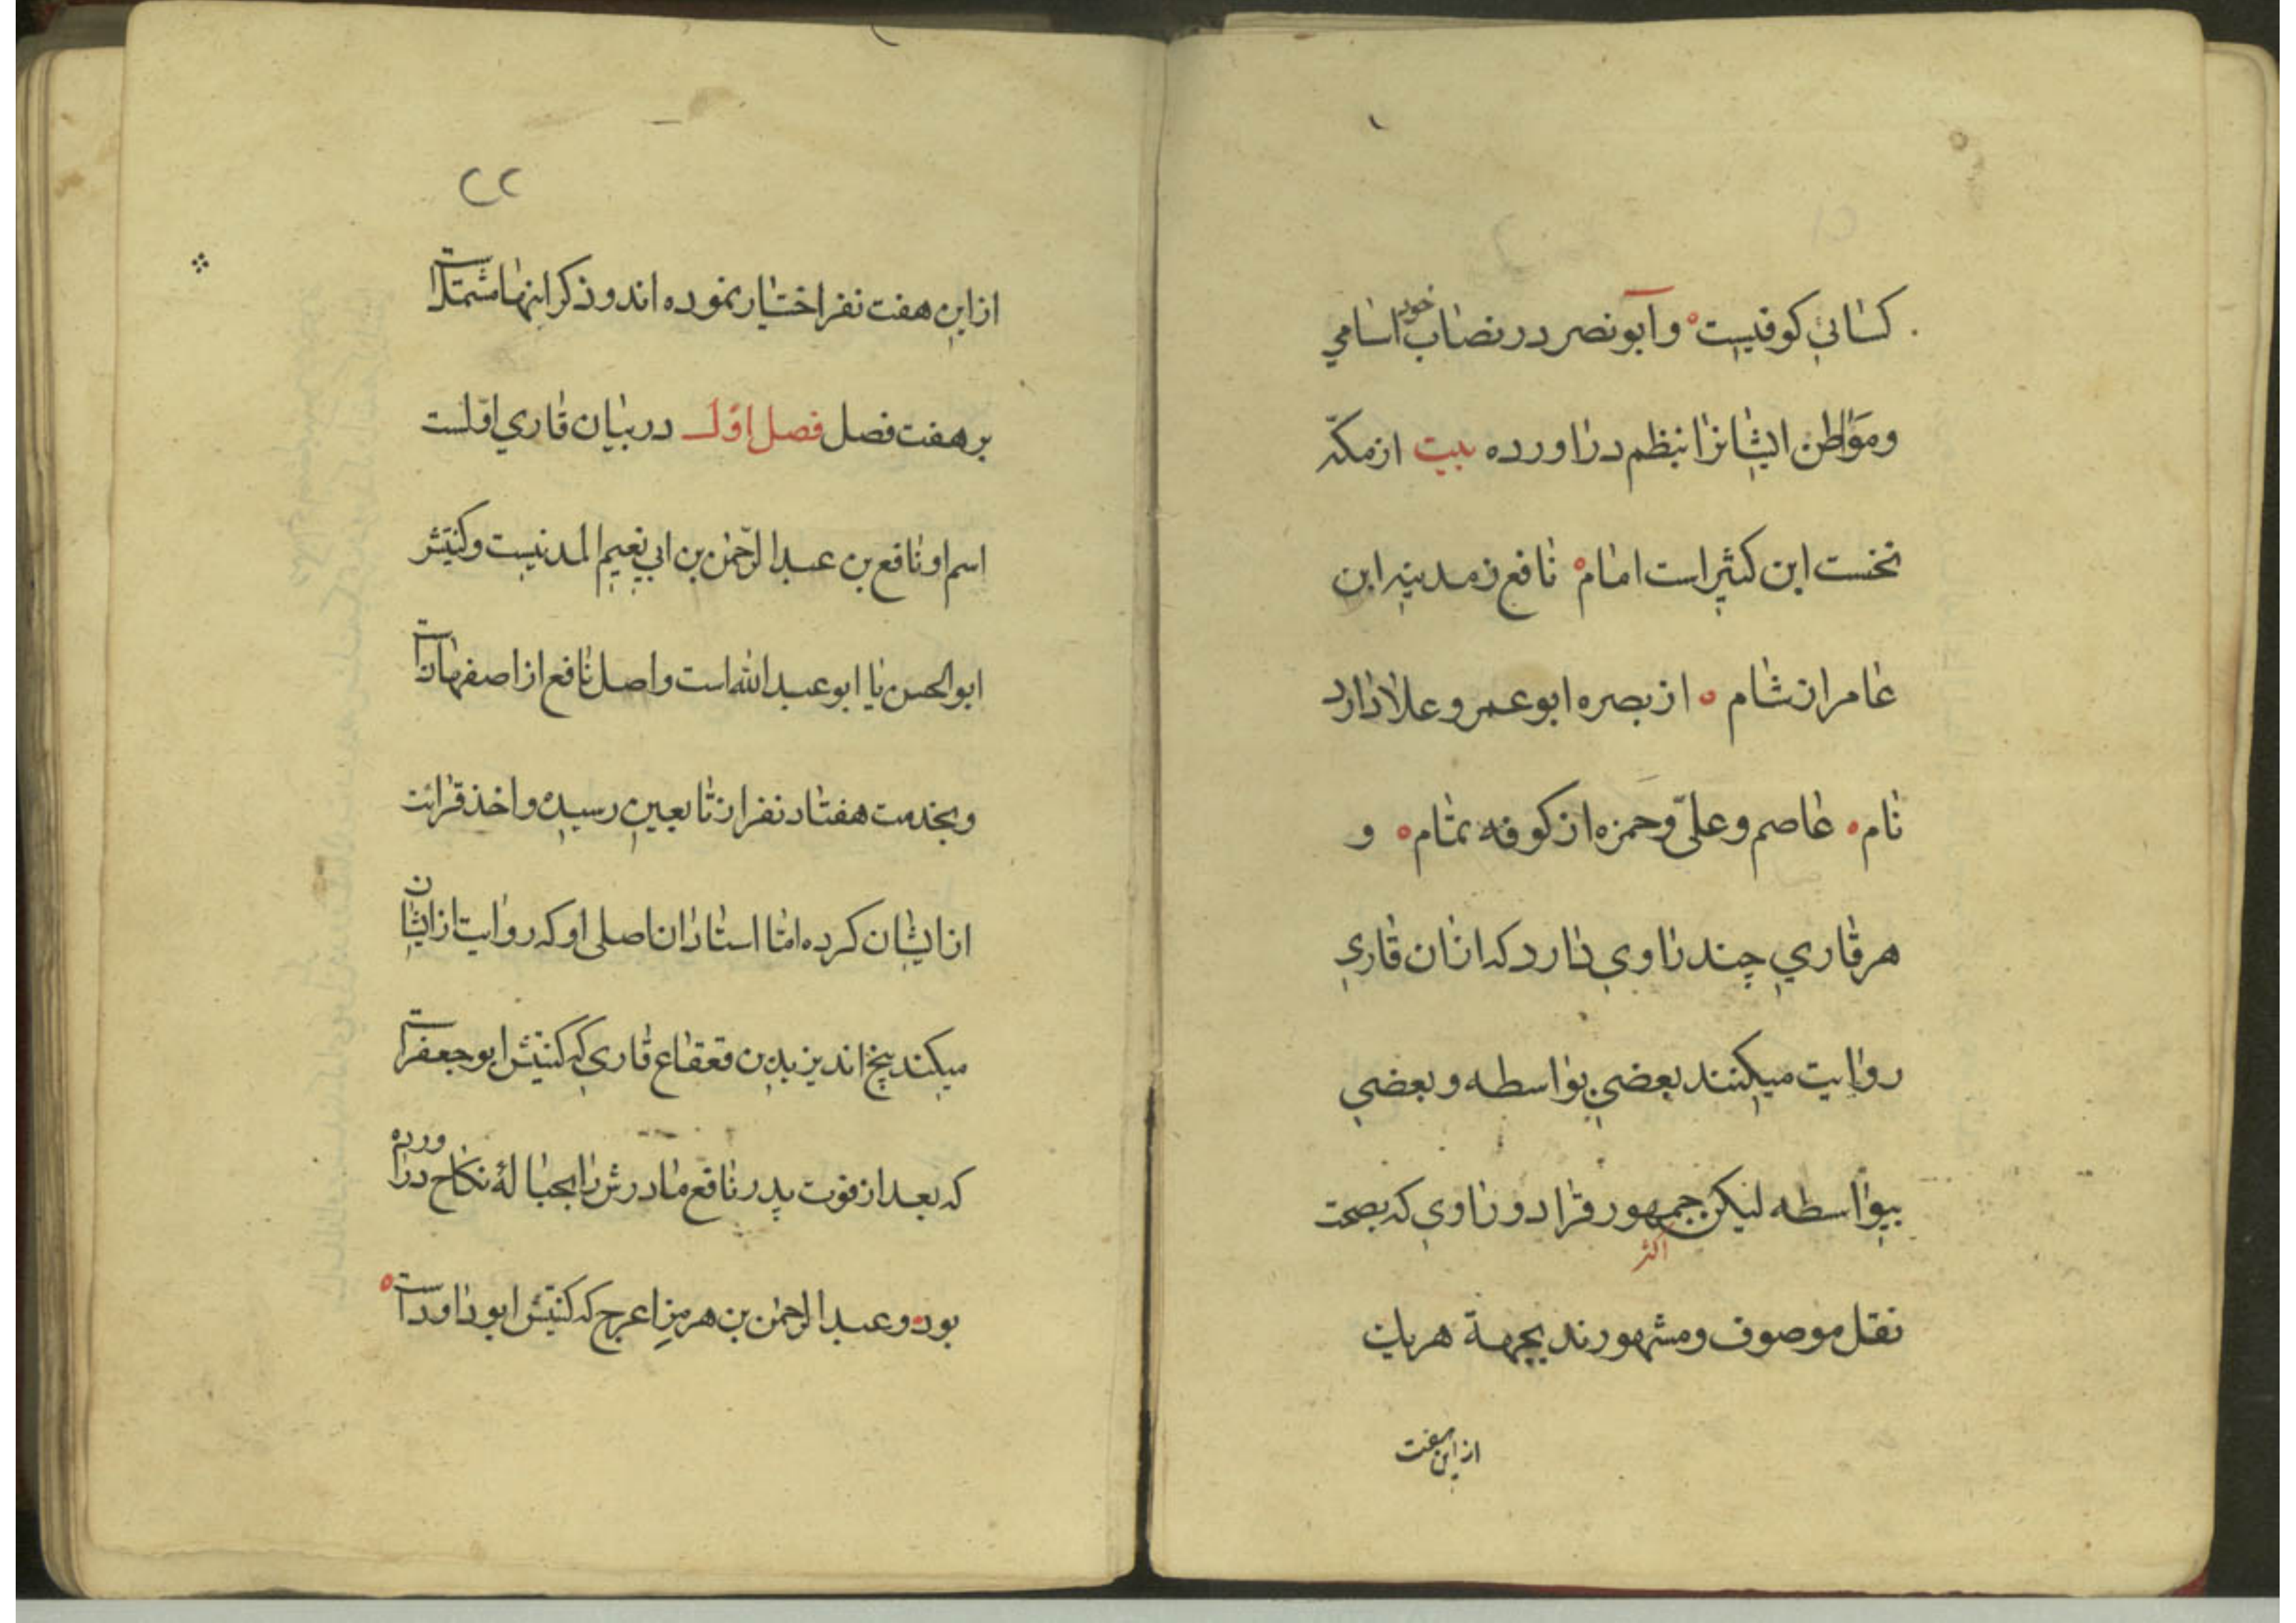 کسائی کوفیست و ابونصر در نصاب خود اسامی
و مواطن ایشانرا بنظم دراورده بیت از مکّه
نخست ابن کثیر است امام نافع ز مدینه ابن
عامر از شام از بصره ابو عمرو علا دارد
نام عاصم و علیّ و حمزه از کوفه تمام و
هر قاری چند راوی دارد که ازان قاری
روایت میکنند بعضی بواسطه و بعضی
بیواسطه لیکن جمهور قرا دو راوی که بصحت
اکثر
نقل موصوف و مشهورند بجهة هر یک
از این هفت
۲۲
از این هفت نفر اختیار نموده اند و ذکر اینها مشتملست
بر هفت فصل فصل اوّل در بیان قاری اوّلست
اسم او نافع بن عبد الرّحمٰن بن ابی نعیم المدنیست و کنیتش
ابو الحسن یا ابو عبد الله است و اصل نافع از اصفهانست
و بخدمت هفتاد نفر از تابعین رسیده و اخذ قرائت
از ایشان کرده امّا استادان اصلی او که روایت از ایشان
میکند پنج اند یزید بن قعقاع قاری که کنیتش ابو جعفر است
که بعد از فوت پدر نافع مادرش را بحبالهٔ نکاح دراورده
بود و عبد الرحمٰن بن هرمز اعرج که کنیتش ابو داود است